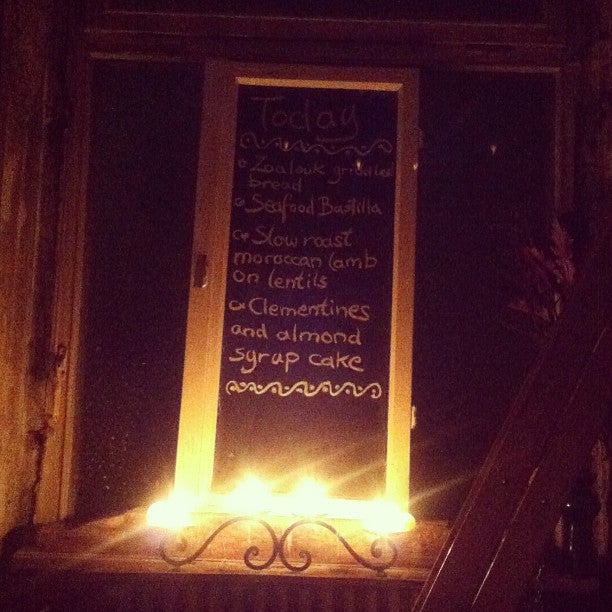 Today
Zaalouk grilled
bread
Seafood Bastilla
Slow roast
moroccan lamb
on lentils
Clementines
and almond
syrup cake